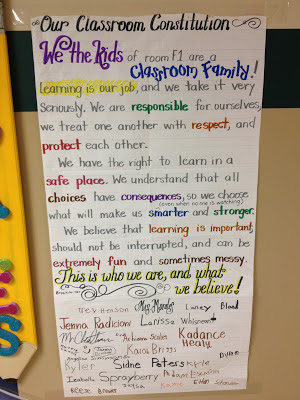 Our Classroom Constitution
We the Kids of room F1 are a
Classroom Family!
Learning is our job, and we take it very
seriously. We are responsible for ourselves,
we treat one another with respect, and
protect each other.
We have the right to learn in a
safe place. We understand that all
choices have consequences, so we choose
(even when no one is watching)
what will make us smarter and stronger.
We believe that learning is important,
should not be interrupted, and can be
extremely fun and sometimes messy.
This is who we are, and what
we believe!
Henson Laney Blood
Jenna Radiciow Larissa
Scales Kadance
Healy
Kaia Briggs
Dylan
Kyler Sidne Peters Kyle
Izabella Sprayberry
Brewer Ethan